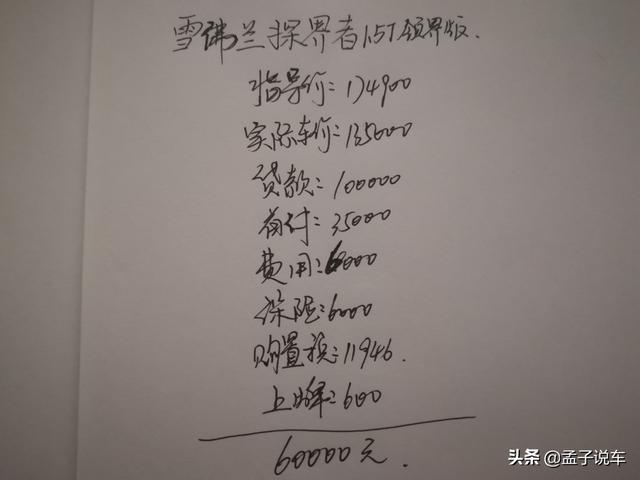 雪佛兰探界者1.5T领界版.
指导价:174900
实际车价:135000
贷款:100000
首付:35000
费用:6000
保险:6000
购置税:11946.
上牌:600
60000元.
头条 @孟子说车